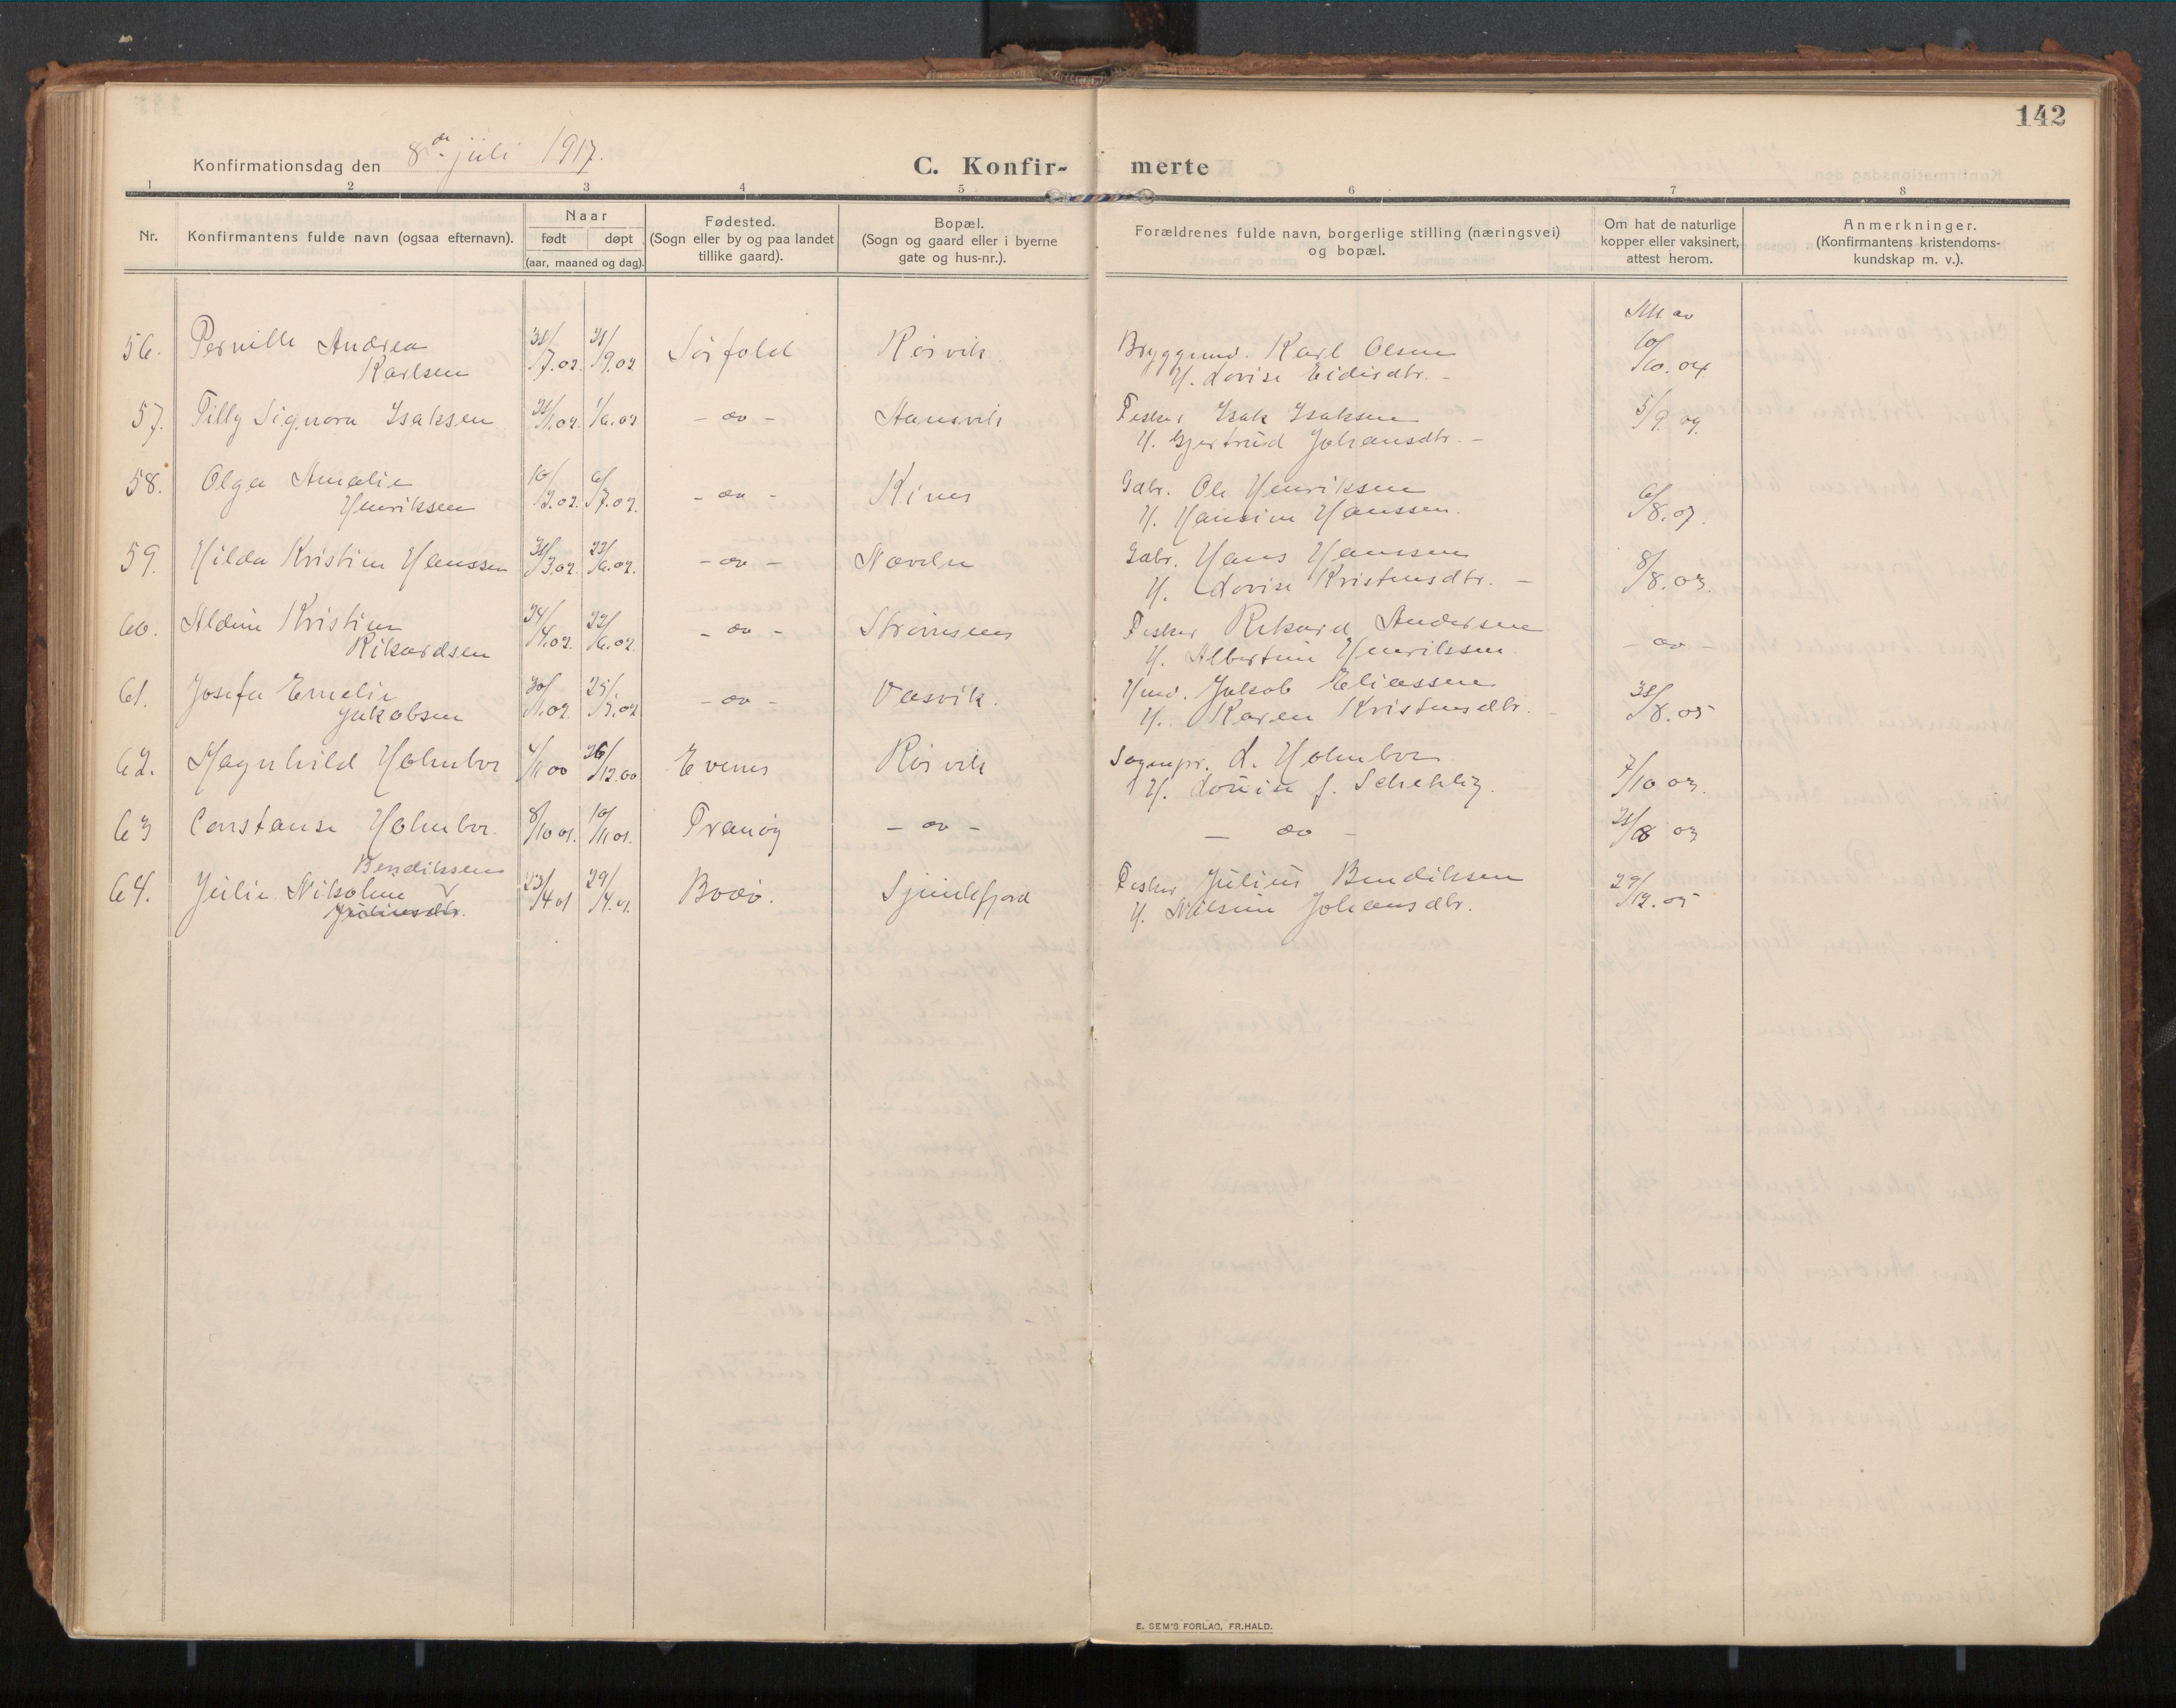 142
Konfirmationsdag den 8de juli 1917.
C. Konfir- merte
1 2 3 4 5 6 7 8
Nr.
Konfirmantens fulde navn (ogsaa efternavn).
Naar
født døpt
(aar, maaned og dag).
Fødested.
(Sogn eller by og paa landet
tillike gaard).
Bopæl.
(Sogn og gaard eller i byerne
gate og hus-nr.).
Forældrenes fulde navn, borgerlige stilling (næringsvei)
og bopæl.
Om hat de naturlige
kopper eller vaksinert,
attest herom.
Anmerkninger.
(Konfirmantens kristendoms-
kundskap m. v.).
56. Pernille Andrea 31/7.02. 21/9.02 Sörfold Rösvik Byggmd. Karl Olsen 10/10.04
Karlsen H. Lovise Eidisdtr. -
57. Tilly Signora Isaksen 1/6.02 - do - Hansvik Fisker Isak Isaksen 5/9.09.
H. Gjertrud Johansdtr. -
58. Olga Amalie 10/3.02. 6/7.02. - do - Kines Gdbr. Ole Henriksen 6/8.07.
Henriksen H. Hansine Hanssen.
59. Hilda Kristine Hanssen 31/3.02. 22/6.02. - do - Næveln Gdbr. Hans Hanssen 8/8.03.
H. Lovise Kristensdtr. -
60. Aldine Kristine 24/4.02. 22/6.02. - do - Strömsnes Fisker Rikard Andersen - do -
Rikardsen H. Albertine Henriksen.
61. Josefa Emelie 20/1.02. - do - Vasvik. Hmd. Jakob Eliassen 31/8.05
Jakobsen H. Karen Kristensdtr. -
62. Magnhild Holmbor 4/11 00 26/12.00 Evenes Rösvik Sognepr. L. Holmbor 7/10 03.
H. Louise f. Schehlig.
63 Constanse Holmbor. 8/10 01. 10/11 01. Tranöy - do - - do - 21/8 03
Bendiksen
64. Julie Nikoline 23/4 01 29/4.01. Bodö. Sjunkfjord Fisker Julius Bendiksen 29/12.05
Juliusdtr. H. Nilsine Johansdtr.
E. SEM'S FORLAG, FR.HALD.